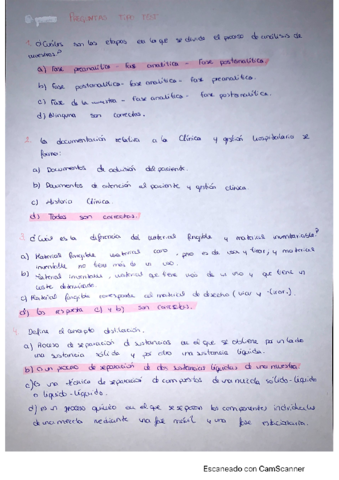 PREGUNTAS TIPO TEST
1. ¿Cuáles son las etapas en la que se divide el proceso de análisis de
muestras?
a) Fase preanalítica - Fase analítica - Fase postanalítica.
b) Fase postanalítica - Fase analítica - Fase preanalítica.
c) Fase de la muestra - Fase analítica - Fase postanalítica.
d) Ninguna son correctas.
2. La documentación relativa a la Clínica y gestión hospitalaria se
forma:
a) Documentos de admisión del paciente.
b) Documentos de atención al paciente y gestión clínica
c) Historia Clínica.
d) Todas son correctas.
3. ¿Cuál es la diferencia del material fungible y material inventariable?
a) Material fungible material caro, pero es de usar y tirar, y material
inventable no tiene más de un uso.
b) Material inventariable, material que tiene más de un uso y que tiene un
coste
c) Material fungible corresponde al material de desecho (usar y tirar.)
d) las respuestas c) y b) son correctas.
4. Define el concepto destilación.
a) Proceso de separación de sustancias en el que se obtiene por un lado
una sustancia sólida y por otro una sustancia líquida.
b) Es un proceso de separación de dos sustancias líquidas de una muestra
c) Es una técnica de separación de compuestos de una mezcla sólido-líquido
o líquido-líquido.
d) es un proceso químico en el que se separan los componentes individuales
de una mezcla mediante una fase móvil y una fase estacionaria.
Escaneado con CamScanner